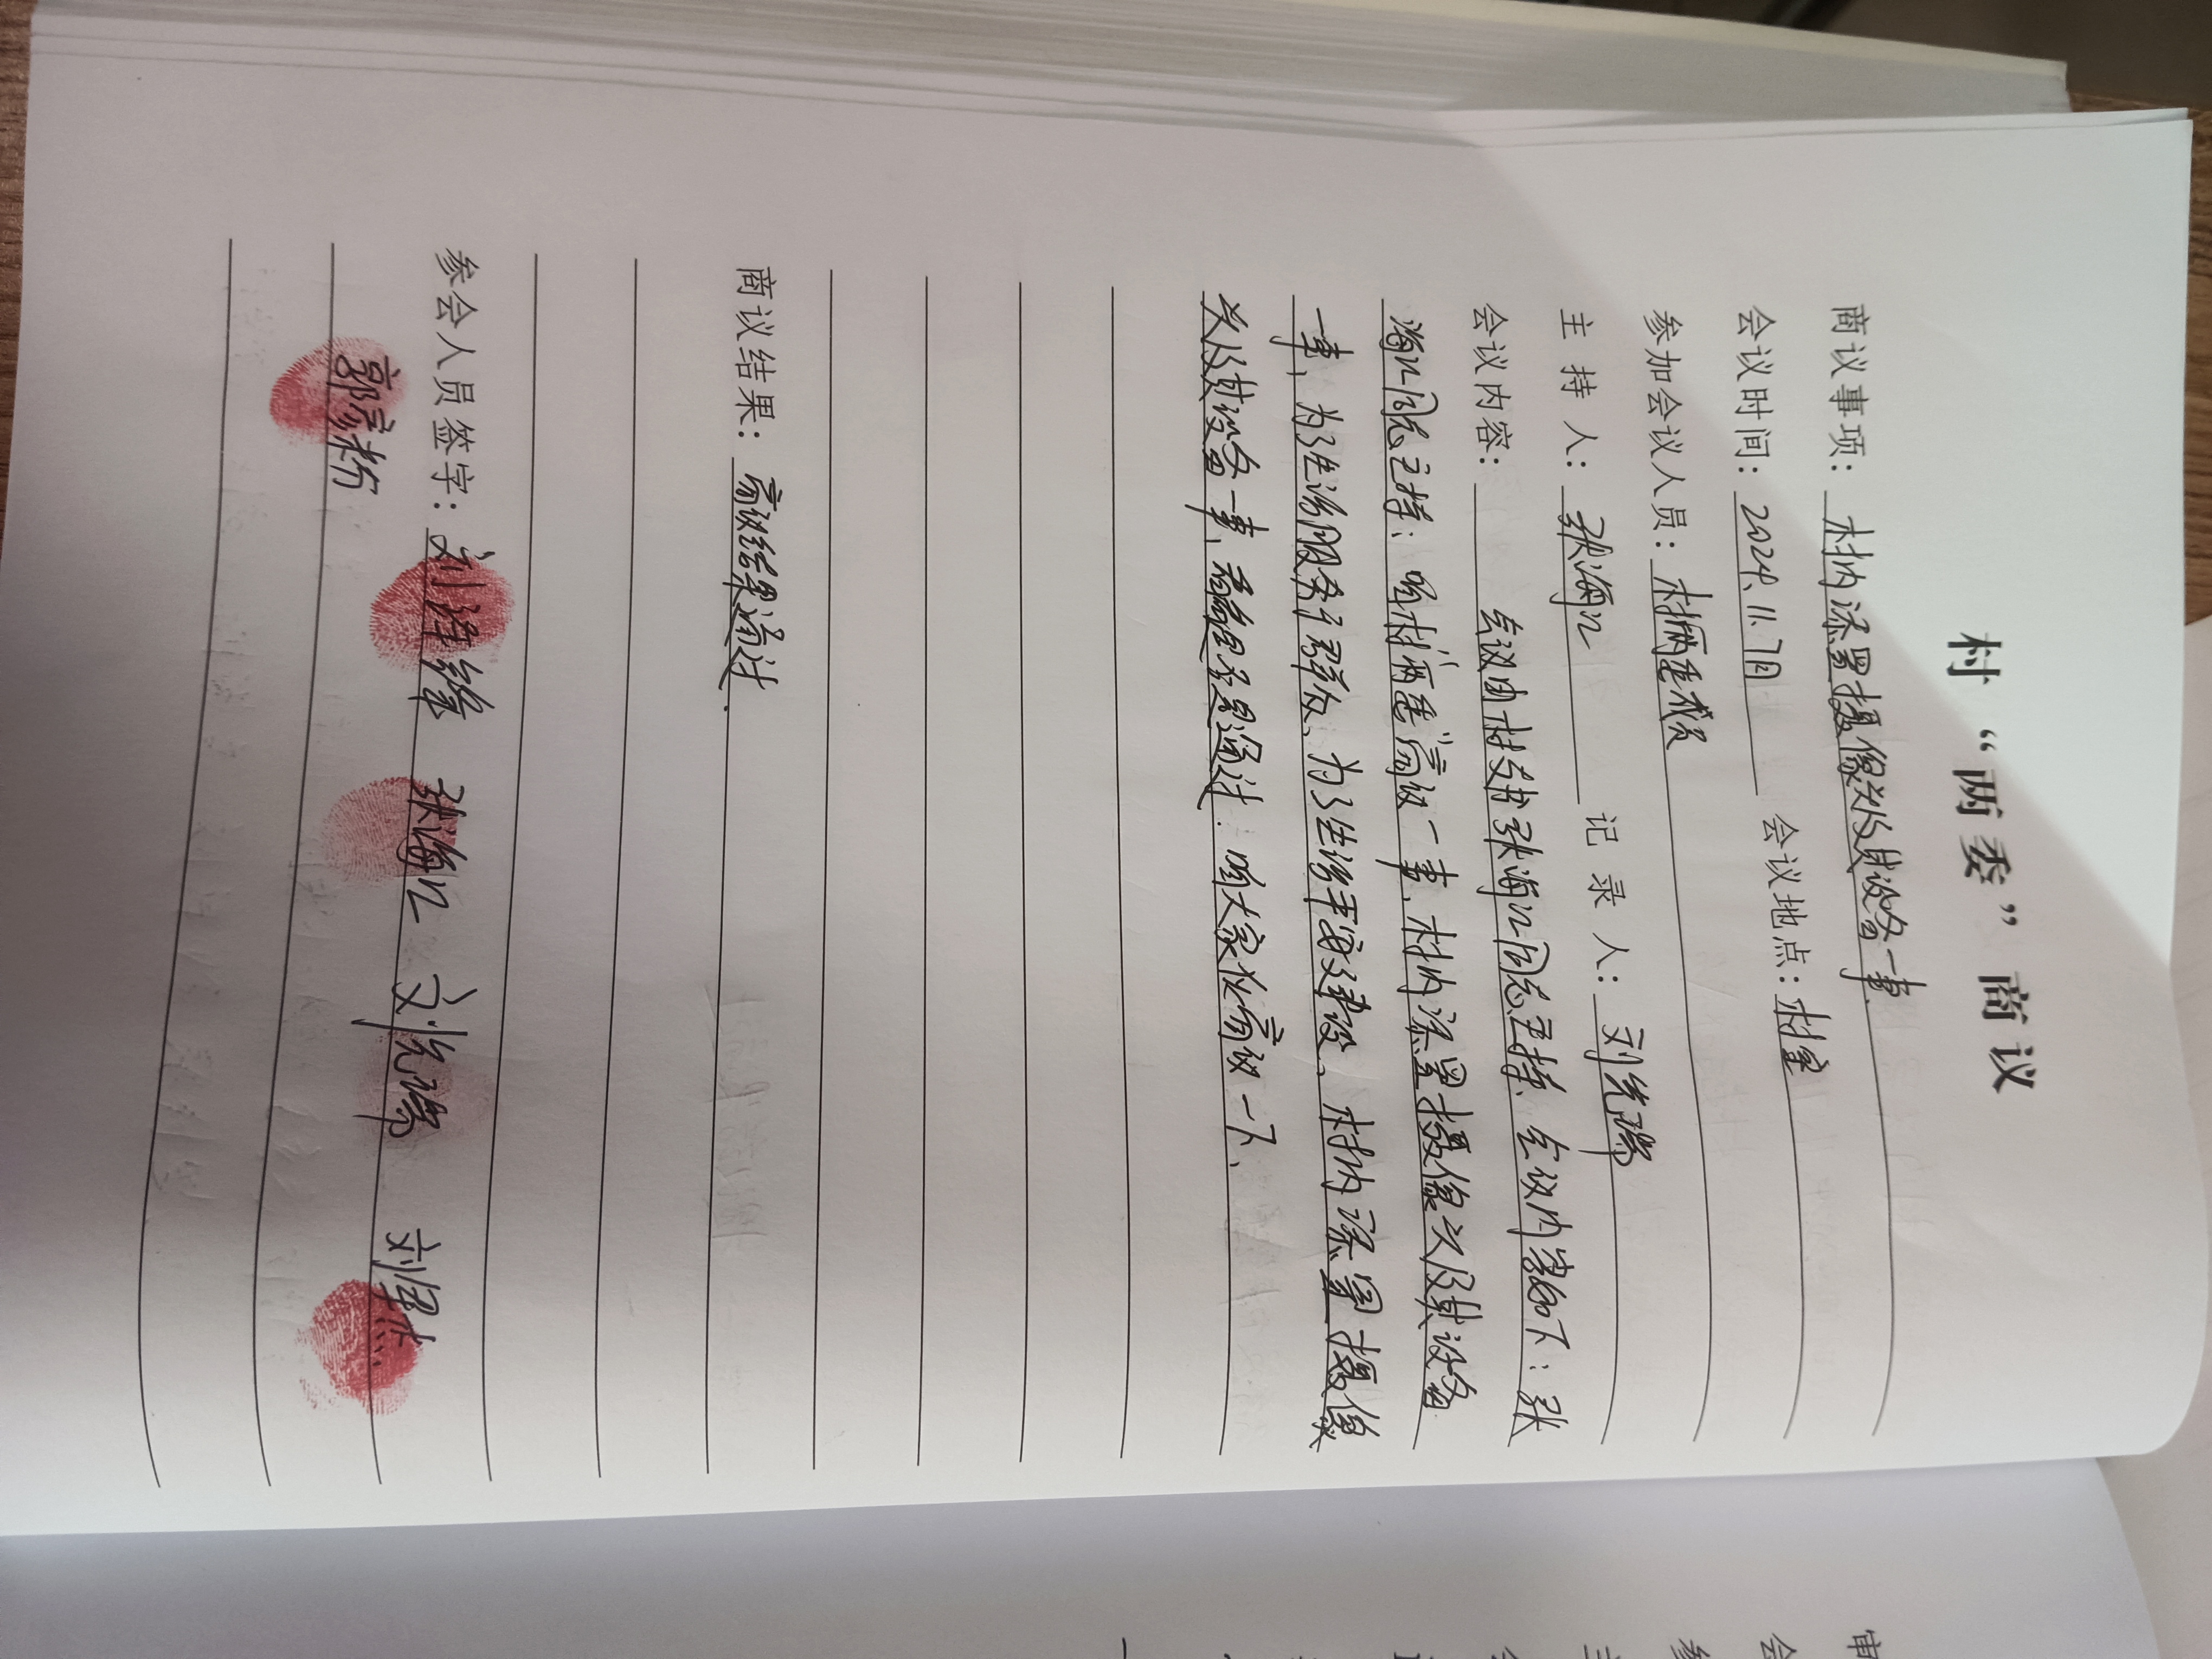 村“两委”商议
商议事项：村内添置摄像头及其设备一事.
会议时间：2024.11.7日 会议地点：村室
参加会议人员：村两委成员
主持人：张海江 记录人：刘先瑞
会议内容：会议由村支书张海江同志主持、会议内容如下：张
海江同志主持：咱村“两委”商议一事，村内添置摄像头及其设备
一事，为了生活服务于群众、为了生活平安建设、村内添置摄像
头及其设备一事，看看是否是通过．咱大家伙商议一下、
商议结果：商议结果通过．
参会人员签字：刘泽锋 张海江 刘先瑞 刘军杰
郭彦粉
审
会
参
主
会